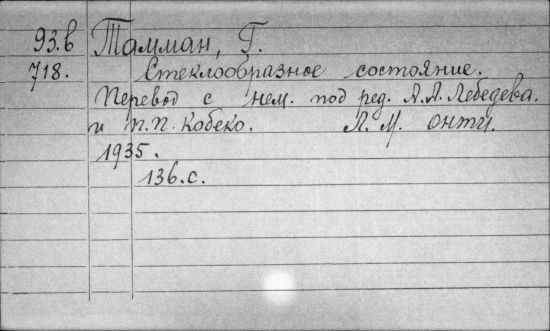 93.в Тамман, Г.
718. Стеклообразное состояние.
Перевод с нем. под ред. А.А. Лебедева.
и П.П. Кобеко. Л. М. ОНТИ.
1935.
136.с.